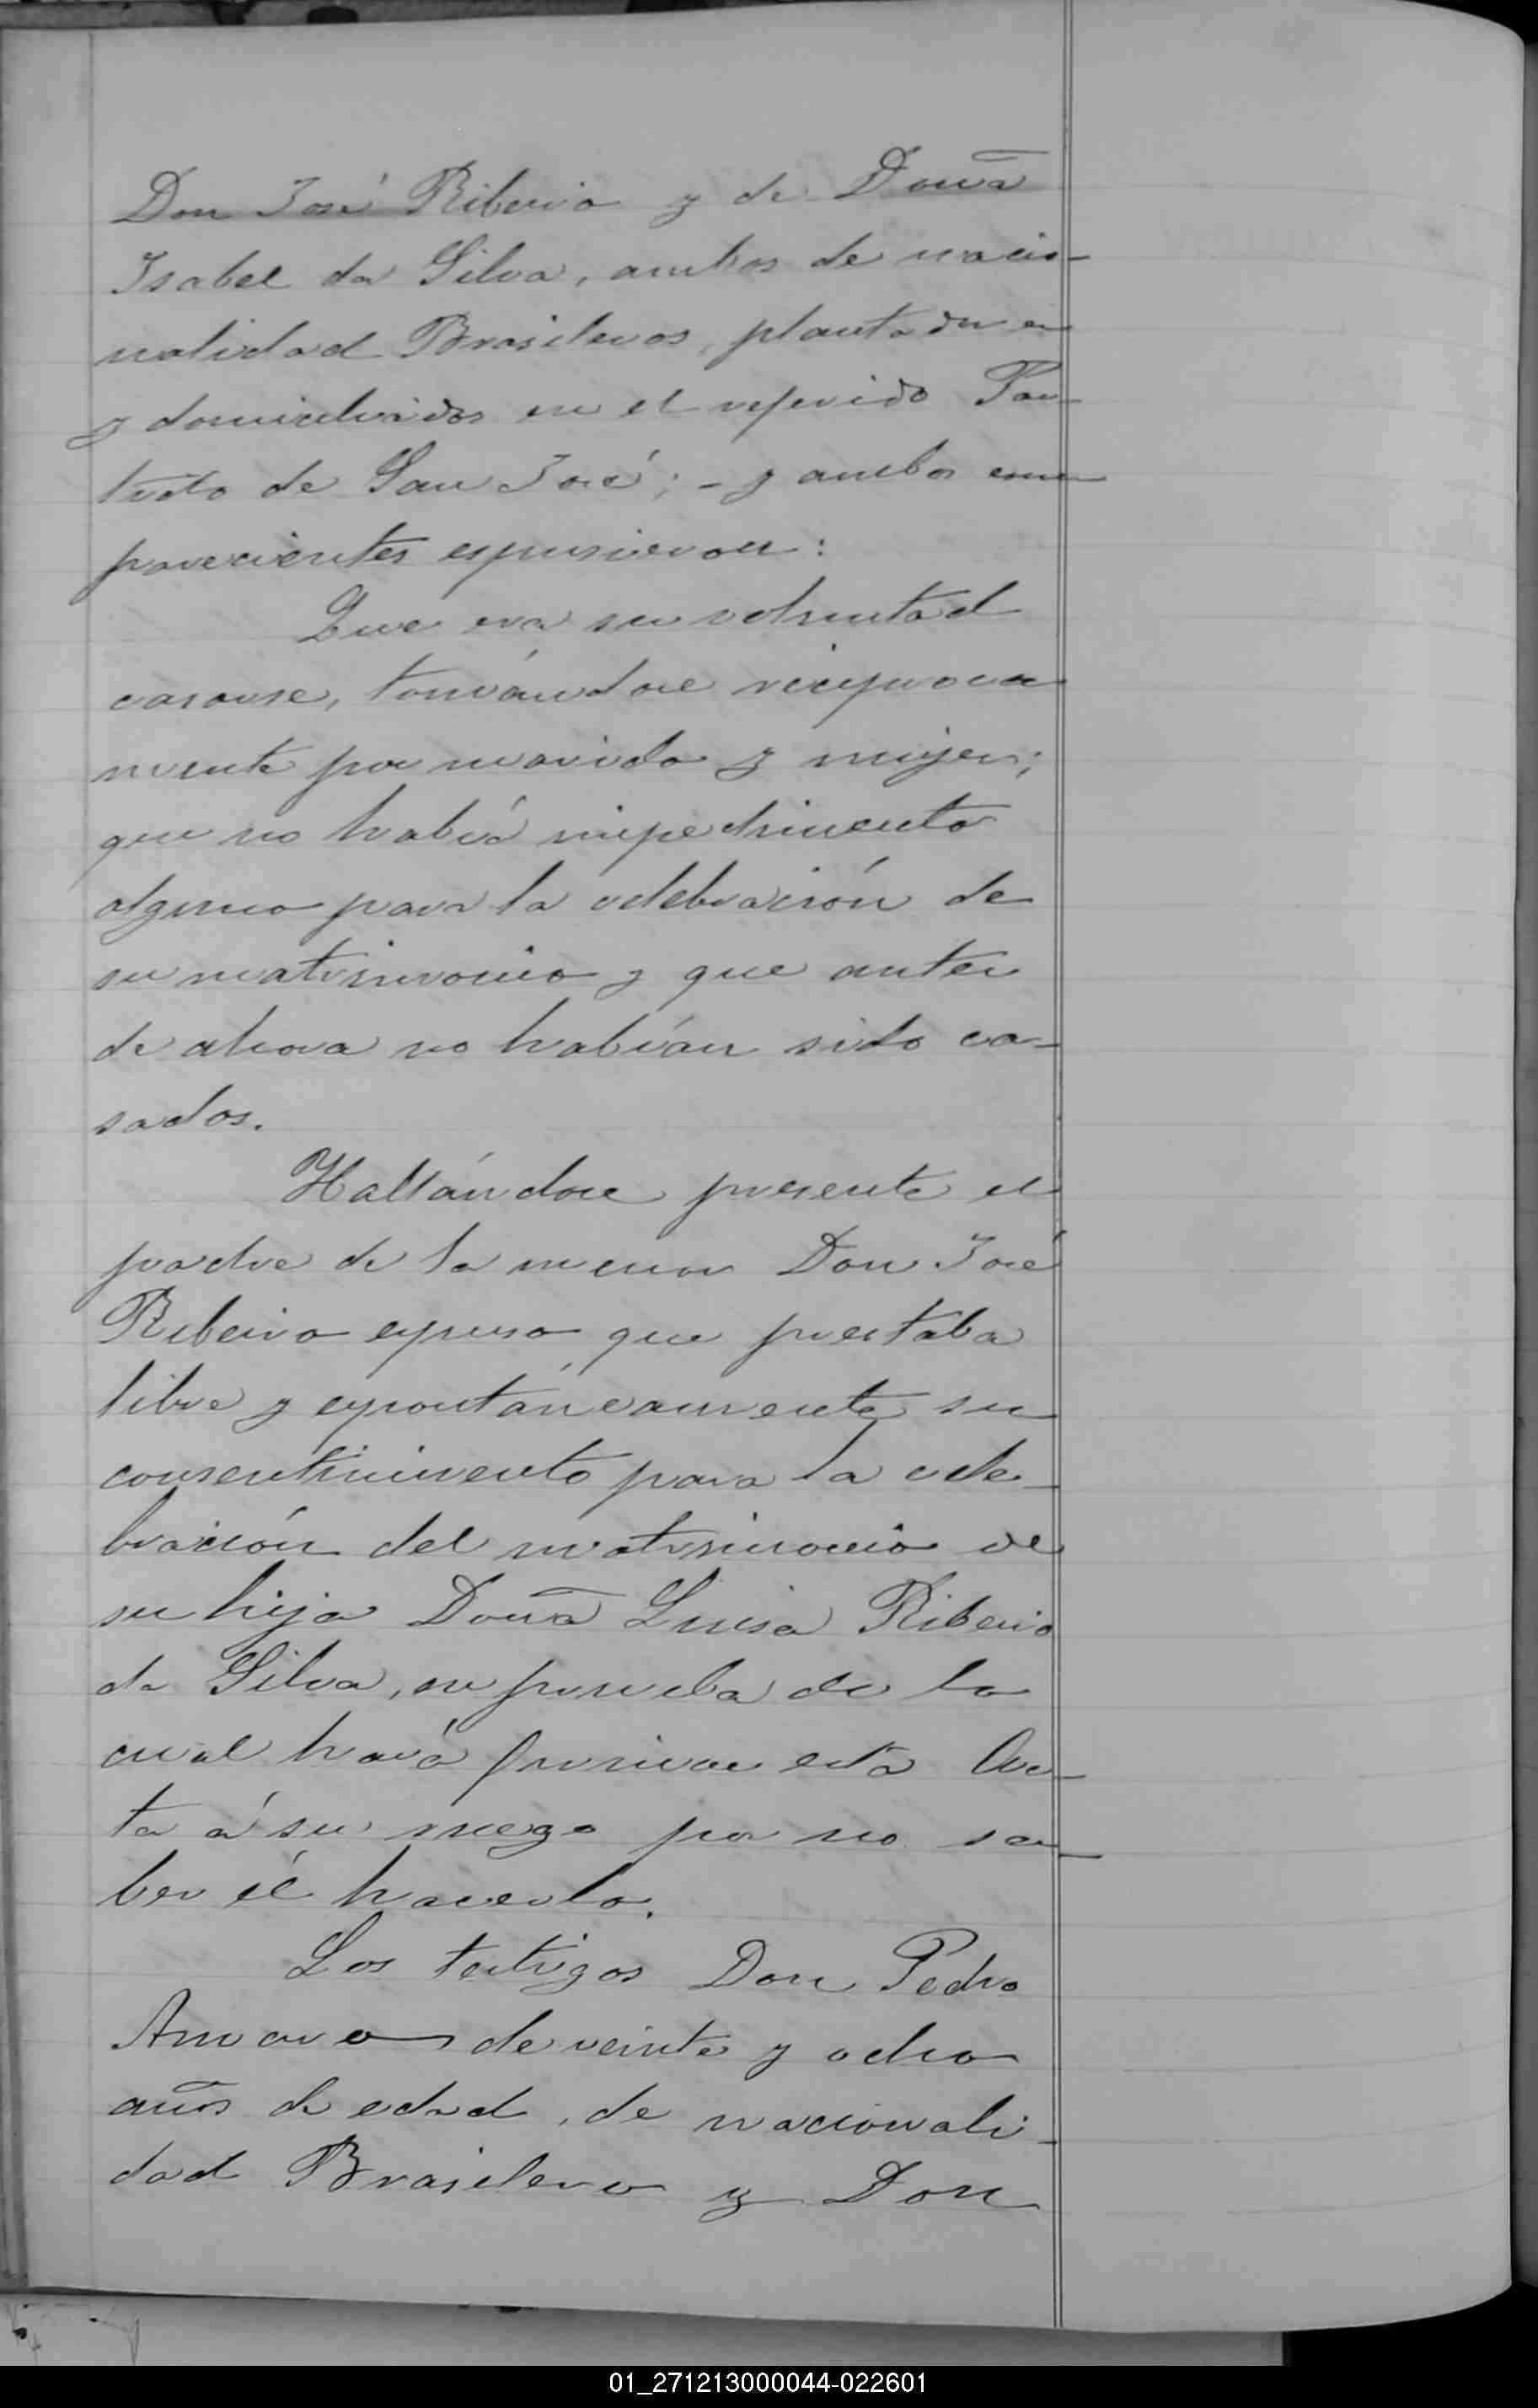 Don José Ribeiro y de Doña
Isabel da Silva, ambos de nacio-
nalidad Brasileros, plantador
y domiciliados en el referido Par-
tido de San José; - y ambos com
parecientes espusieron:
Que era su voluntad
casarse, tomándose reciproca
mente por marido y mujer;
que no había impedimento
alguno para la celebración de
su matrimonio y que antes
de ahora no habían sido ca-
sados.
Hallándose presente el
padre de la menor Don José
Ribeiro espuso que prestaba
libre y espontáneamente su
consentimiento para la cele-
bración del matrimonio de
su hija Doña Luisa Ribeiro
da Silva, en prueba de lo
cual hará firmar esta Ac-
ta á su ruego por no sa-
ber él hacerlo.
Los testigos Don Pedro
Amaro de veinte y ocho
años de edad, de nacionali-
dad Brasilero y Don
01_271213000044-022601